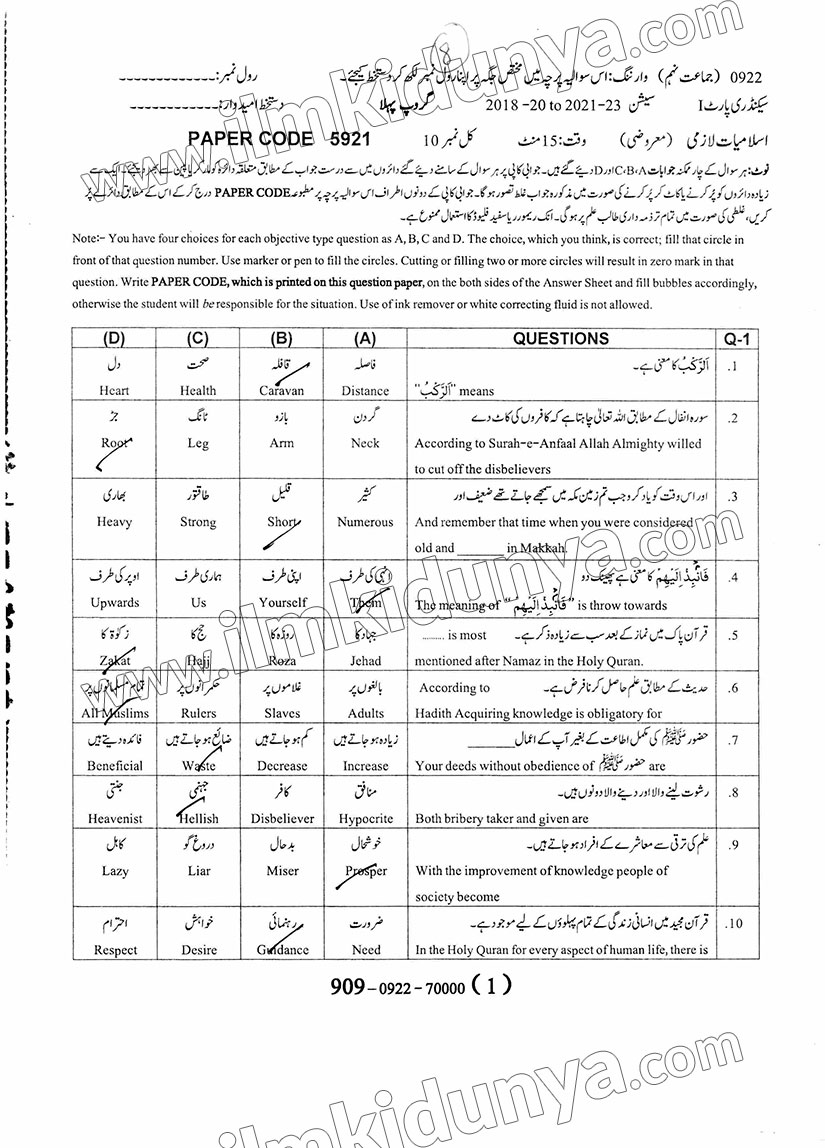 0922 (جماعت نہم) وارننگ: اس سوالیہ پرچہ میں مختص جگہ پر اپنا رول نمبر لکھ کر دستخط کیجئے۔ رول نمبر:
سیکنڈری پارٹ I سیشن 2018-20 to 2021-23 گروپ پہلا دستخط امیدوار:
اسلامیات لازمی (معروضی) وقت: 15 منٹ کل نمبر 10 PAPER CODE 5921
نوٹ: ہر سوال کے چار ممکنہ جوابات C،B،A اور D دیئے گئے ہیں۔ جوابی کاپی پر ہر سوال کے سامنے دیئے گئے دائروں میں سے درست جواب کے مطابق متعلقہ دائرہ کو مارکر یا پین سے بھر دیجئے۔ ایک سے
زیادہ دائروں کو پُر کرنے یا کاٹ کر پُر کرنے کی صورت میں مذکورہ جواب غلط تصور ہوگا۔ جوابی کاپی کے دونوں اطراف اس سوالیہ پرچہ پر مطبوعہ PAPER CODE درج کر کے اس کے مطابق دائرے پُر
کریں، غلطی کی صورت میں تمام تر ذمہ داری طالب علم پر ہوگی۔ انک ریمور یا سفید فلیوڈ کا استعمال ممنوع ہے۔
Note:- You have four choices for each objective type question as A, B, C and D. The choice, which you think, is correct; fill that circle in
front of that question number. Use marker or pen to fill the circles. Cutting or filling two or more circles will result in zero mark in that
question. Write PAPER CODE, which is printed on this question paper, on the both sides of the Answer Sheet and fill bubbles accordingly,
otherwise the student will be responsible for the situation. Use of ink remover or white correcting fluid is not allowed.
(D) (C) (B) (A) QUESTIONS Q-1
دل صحت قافلہ فاصلہ اَلرَّکْبُ کا معنی ہے۔ .1
Heart Health Caravan Distance "اَلرَّکْبُ" means
جڑ ٹانگ بازو گردن سورہ انفال کے مطابق اللہ تعالیٰ چاہتا ہے کہ کافروں کی کاٹ دے .2
Root Leg Arm Neck According to Surah-e-Anfaal Allah Almighty willed
to cut off the disbelievers
بھاری طاقتور قلیل کثیر اور اس وقت کو یاد کرو جب تم زمین مکہ میں سمجھے جاتے تھے ضعیف اور .3
Heavy Strong Short Numerous And remember that time when you were considered
old and ______ in Makkah.
اوپر کی طرف ہماری طرف اپنی طرف انہی کی طرف فَانْۢبِذْ اِلَیْهِمْ کا معنی ہے پھینک دو .4
Upwards Us Yourself Them The meaning of "فَانْۢبِذْ اِلَیْهِمْ" is throw towards
زکوٰۃ کا حج کا روزہ کا جہاد کا قرآن پاک میں نماز کے بعد سب سے زیادہ ذکر ہے۔ .......... is most .5
Zakat Hajj Roza Jehad mentioned after Namaz in the Holy Quran.
تمام مسلمانوں پر حکمرانوں پر غلاموں پر بالغوں پر حدیث کے مطابق علم حاصل کرنا فرض ہے۔ According to .6
All Muslims Rulers Slaves Adults Hadith Acquiring knowledge is obligatory for
فائدہ دیتے ہیں ضائع ہو جاتے ہیں کم ہو جاتے ہیں زیادہ ہو جاتے ہیں حضور ﷺ کی مکمل اطاعت کے بغیر آپ کے اعمال ________ .7
Beneficial Waste Decrease Increase Your deeds without obedience of حضور ﷺ are
جنتی جہنمی کافر منافق رشوت لینے والا اور دینے والا دونوں ہیں۔ .8
Heavenist Hellish Disbeliever Hypocrite Both bribery taker and given are
کاہل دروغ گو بدحال خوشحال علم کی ترقی سے معاشرے کے افراد ہو جاتے ہیں۔ .9
Lazy Liar Miser Prosper With the improvement of knowledge people of
society become
احترام خواہش رہنمائی ضرورت قرآن مجید میں انسانی زندگی کے تمام پہلوؤں کے لیے موجود ہے۔ .10
Respect Desire Guidance Need In the Holy Quran for every aspect of human life, there is
909-0922-70000 (1)
www.ilmkidunya.com
www.ilmkidunya.com
www.ilmkidunya.com
ilmkidunya.com